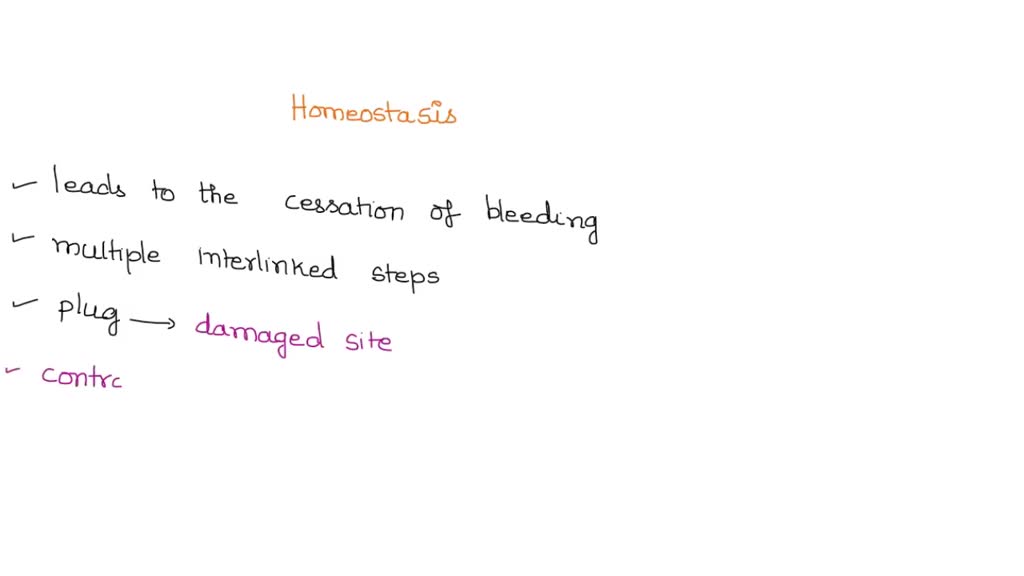 Homeostasis
✓ leads to the cessation of bleeding
✓ multiple interlinked steps
✓ plug → damaged site
✓ contrc